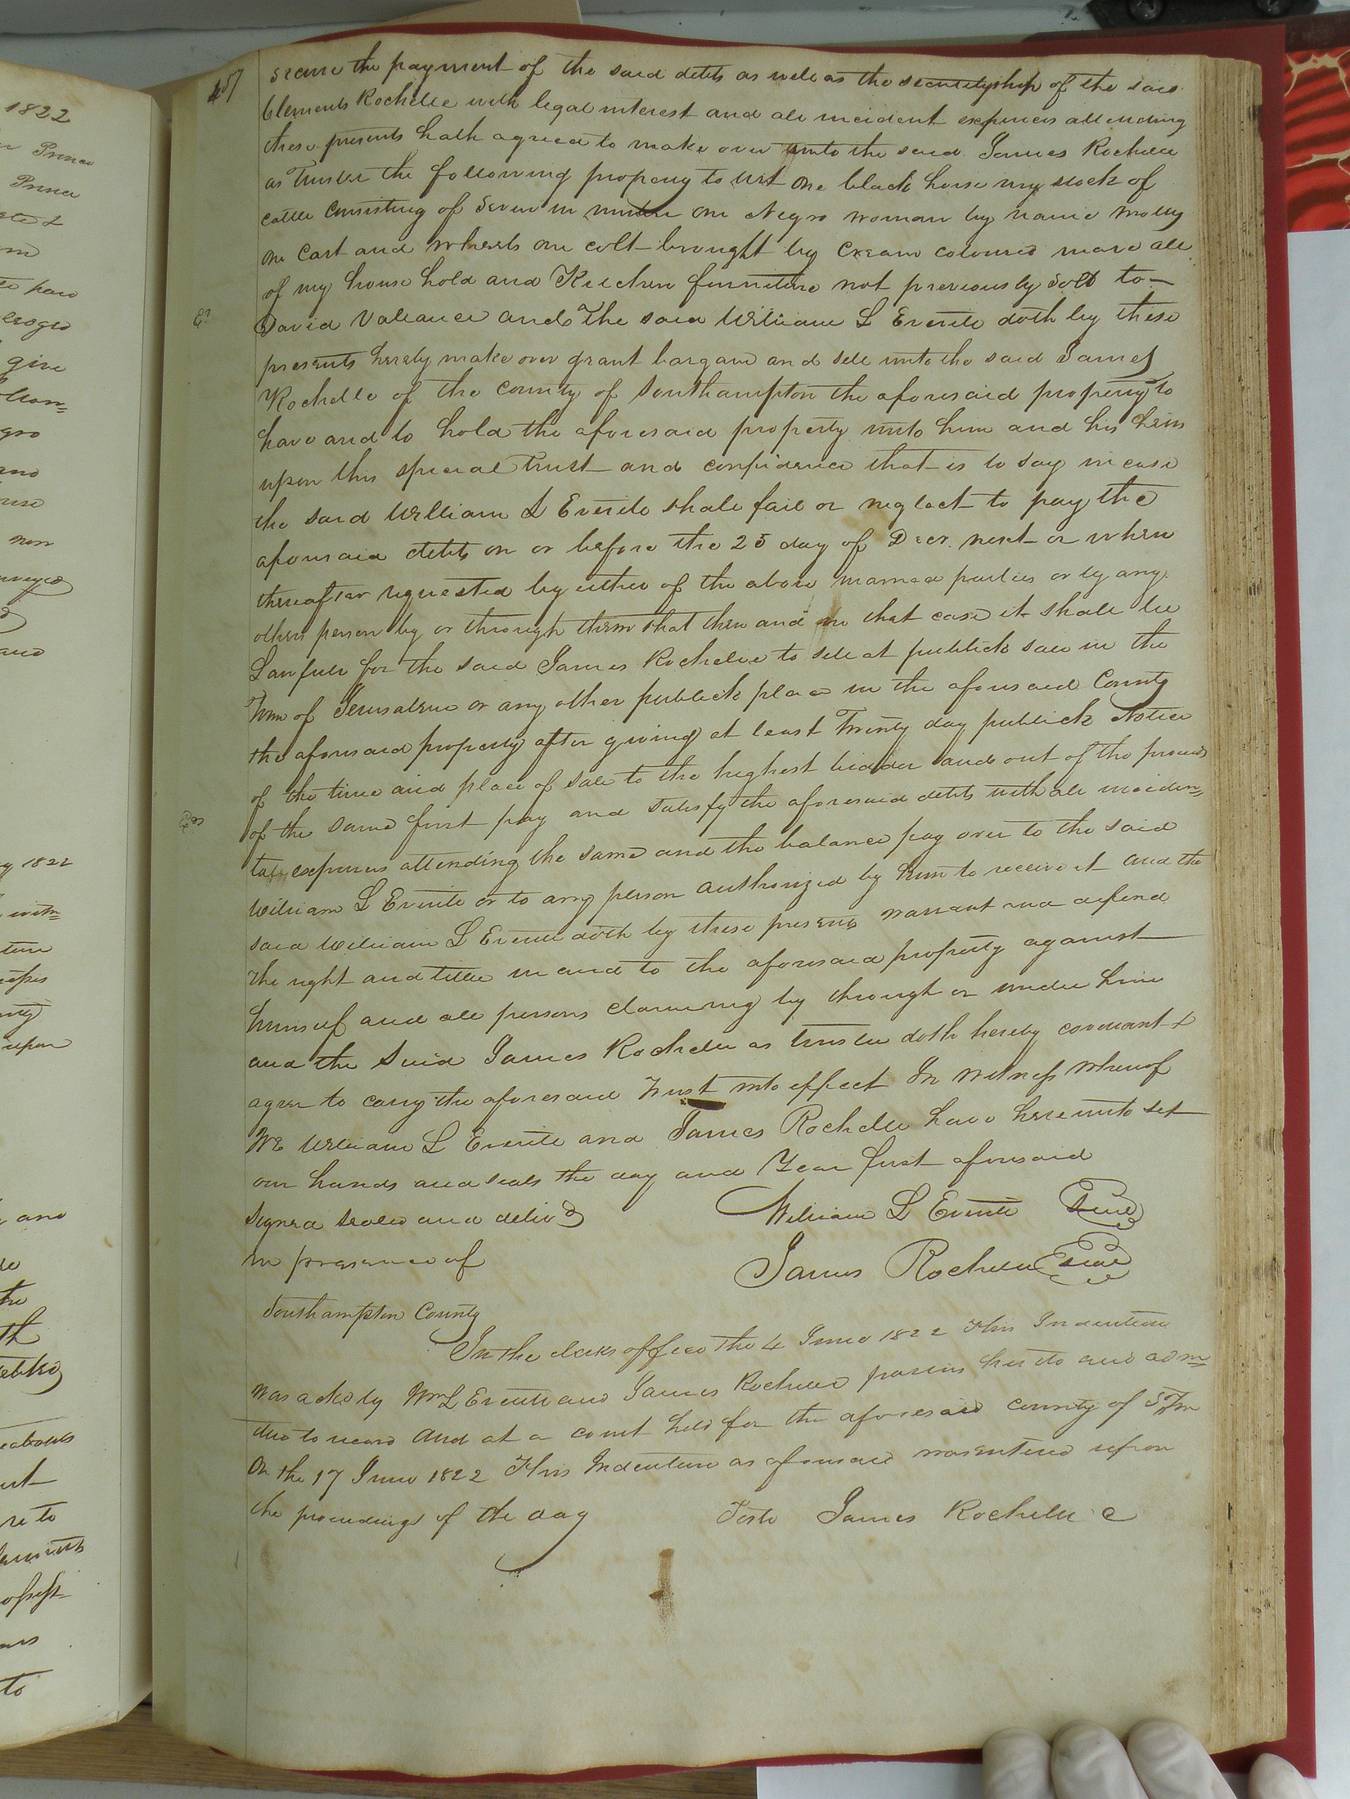 457
secure the payment of the said debts as well as the securityship of the said
Clements Rochelle with legal interest and all incident expences attending
these presents hath agreed to make over unto the said James Rochelle
as Trustee the following propery to wit one black horse my stock of
cattle consisting of seven in number one Negro woman by name Molly
one cart and wheels one colt brought by cream coloured mare all
of my house hold and Kitchen furniture not previously sold to
David Vallance and The said William L Everitt doth by these
presents hereby make over grant bargain and sell unto the said James
Rochelle of the county of Southampton the aforesaid property to
have and to hold the aforesaid property unto him and his heirs
upon this special Trust and confidence that is to say in case
the said William L Everitt shall fail or neglect to pay the
aforesaid debts on or before the 25 day of Decr. next or when
thereafter requested by either of the above named parties or by any
other person by or through them that then and in that case it shall be
Lawfull for the said James Rochelle to sell at publick sale in the
Town of Jerusalem or any other publick place in the aforesaid County
the aforesaid property after giving at least Twenty day publick Notice
of the time and place of sale to the highest bidder and out of the proceeds
of the same first pay and satisfy the aforesaid debts with all inciden=
tal expences attending the same and the balance pay over to the said
William L Everitt or to any person authorized by him to receive it and the
said William L Everitt doth by these presents warrant and defend
the right and title in and to the aforesaid property against
himself and all persons claiming by through or under him
and the said James Rochelle as trustee doth hereby covenant &
agree to carry the aforesaid Trust into effect In witness whereof
We William L Everitt and James Rochelle have hereunto set
our hands and seals the day and Year first aforesaid
Signed sealed and delivd William L Everitt Seal
in presence of James Rochelle Seal
Southampton County
In the clerks office the 4 June 1822 This Indenture
was ackd by Wm L Everitt and James Rochelle parties hereto and adm=
itted to record And at a court held for the aforesaid county of
on the 17 June 1822 This Indenture as aforesaid was entered upon
the proceedings of the day Teste James Rochelle C